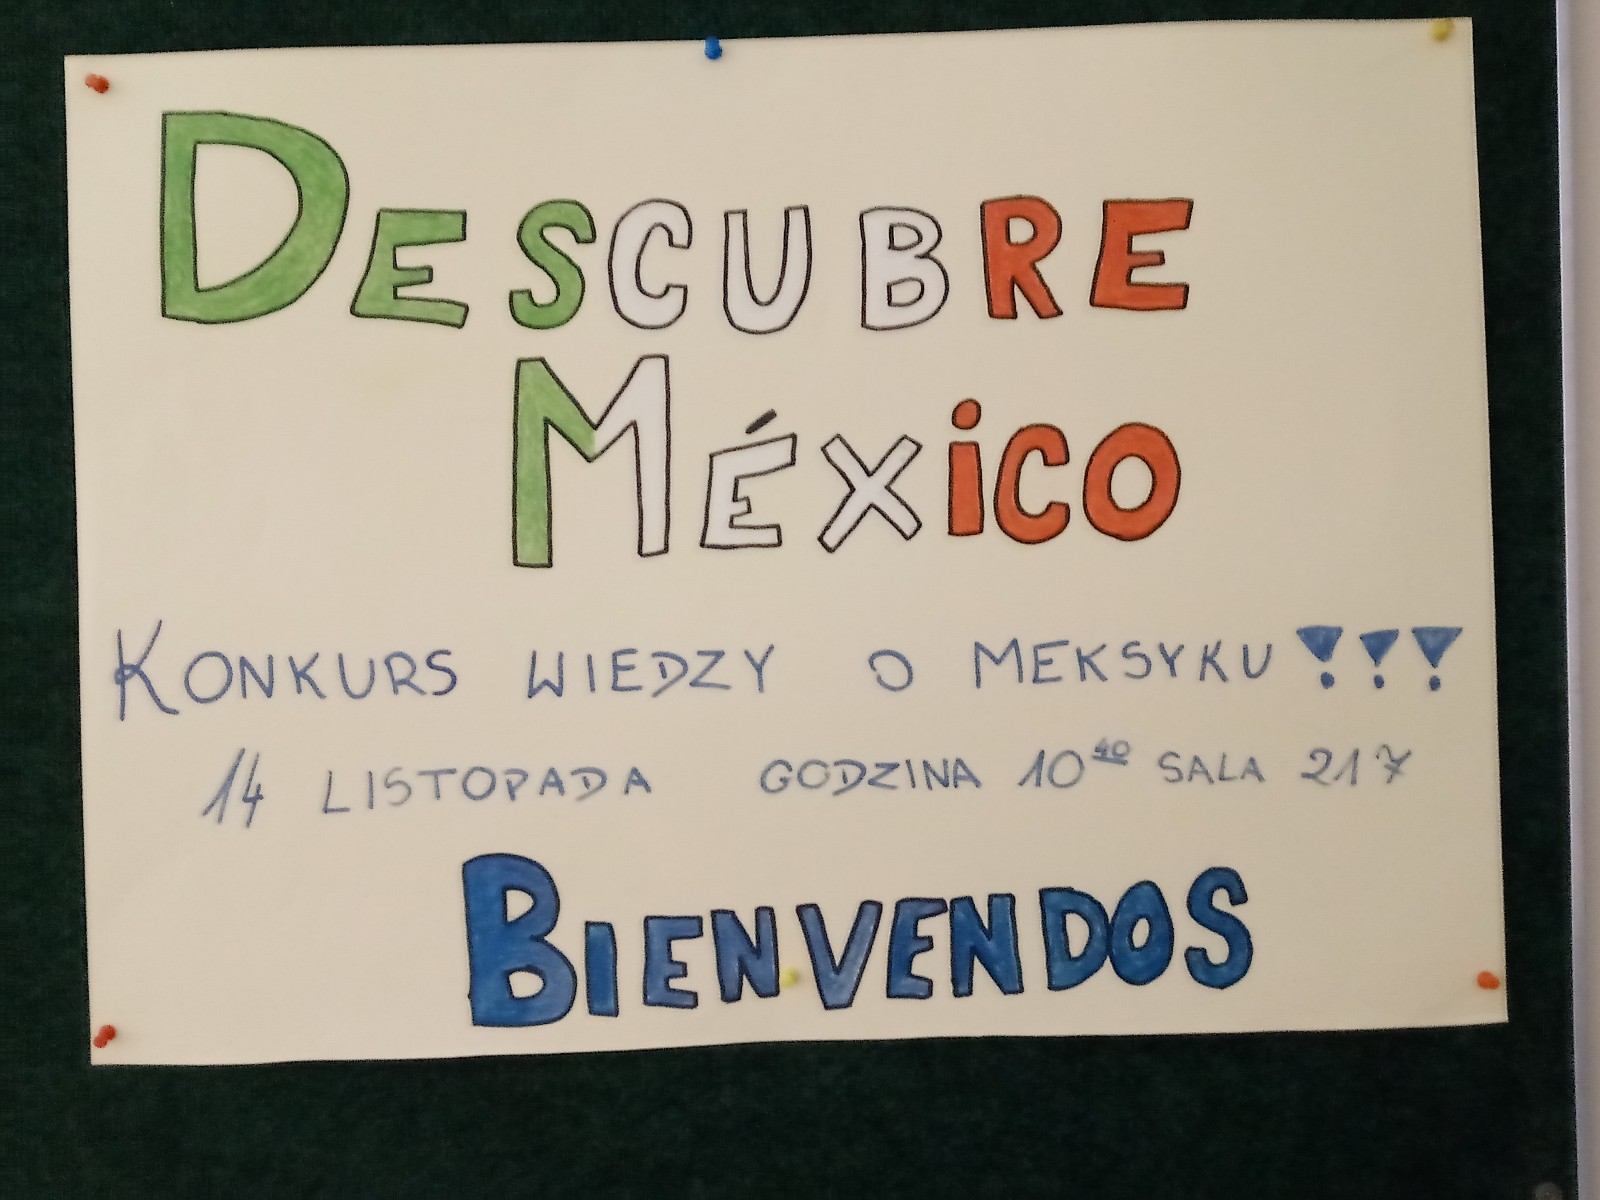 DESCUBRE
MÉXiCO
KONKURS WIEDZY O MEKSYKU!!!
14 LISTOPADA GODZINA 10⁴⁰ SALA 217
BIENVENDOS